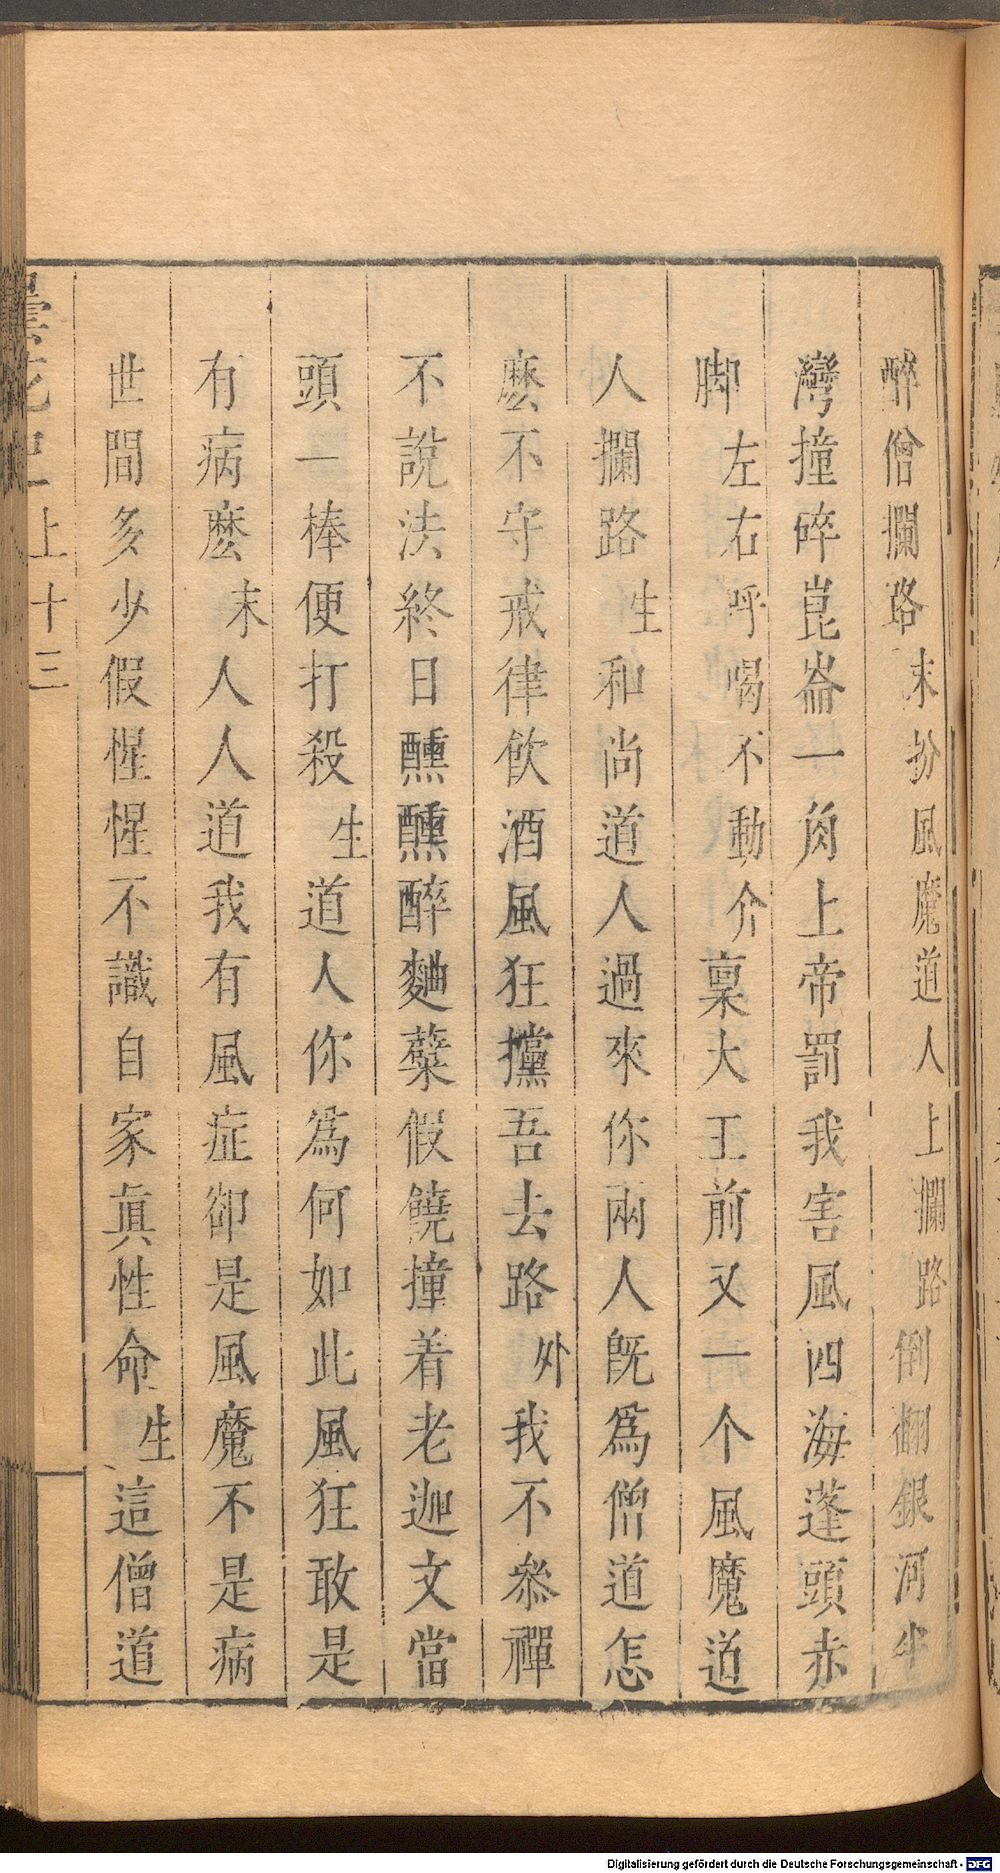 醉僧攔路末扮風魔道人上攔路倒翻銀河半
灣撞碎崑崙一角上帝罰我害風四海蓬頭赤
脚左右呼喝不動介稟大王前又一个風魔道
人攔路生和尚道人過來你兩人既為僧道怎
麽不守戒律飲酒風狂攩吾去路外我不叅禪
不說法終日醺醺醉麯蘖假饒撞着老迦文當
頭一棒便打殺生道人你為何如此風狂敢是
有病麽末人人道我有風症卻是風魔不是病
世間多少假惺惺不識自家眞性命生這僧道
曇花記上十三
Digitalisierung gefördert durch die Deutsche Forschungsgemeinschaft - DFG